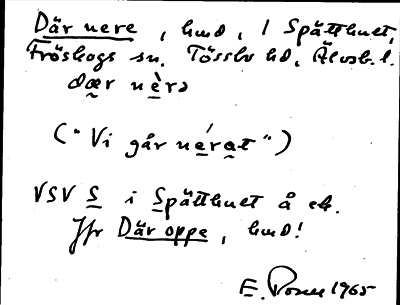 Där nere, hmd, i Spätthuet,
Fröskogs sn. Tössbo hd, Älvsb. l.
dær nèrə
("Vi går nérat")
VSV S i Spätthuet å ek.
Jfr Där oppe, hmd!
E. 1965